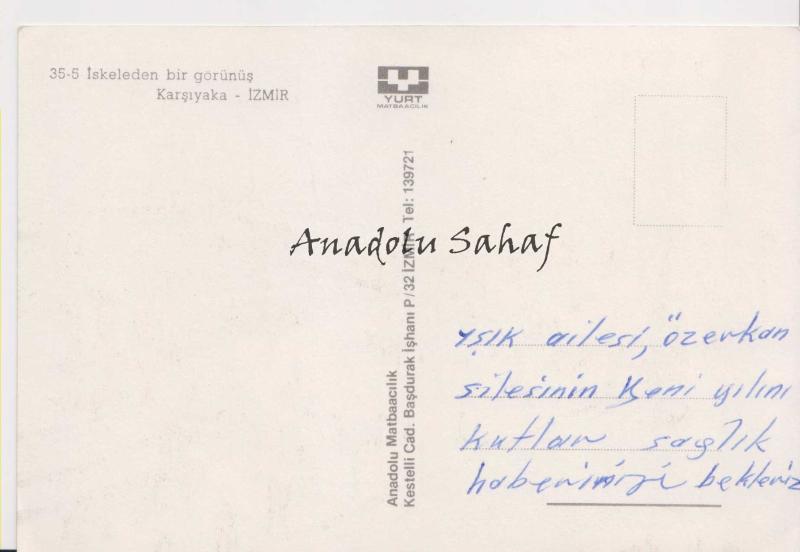 35-5 İskeleden bir görünüş
Karşıyaka - İZMİR
YURT
MATBAACILIK
Anadolu Matbaacılık
Kestelli Cad. Başdurak İşhanı P/32 İZMİR Tel: 139721
Anadolu Sahaf
Işık ailesi, Özerkan
ailesinin Yeni yılını
kutlar sağlık
haberinizi bekleriz